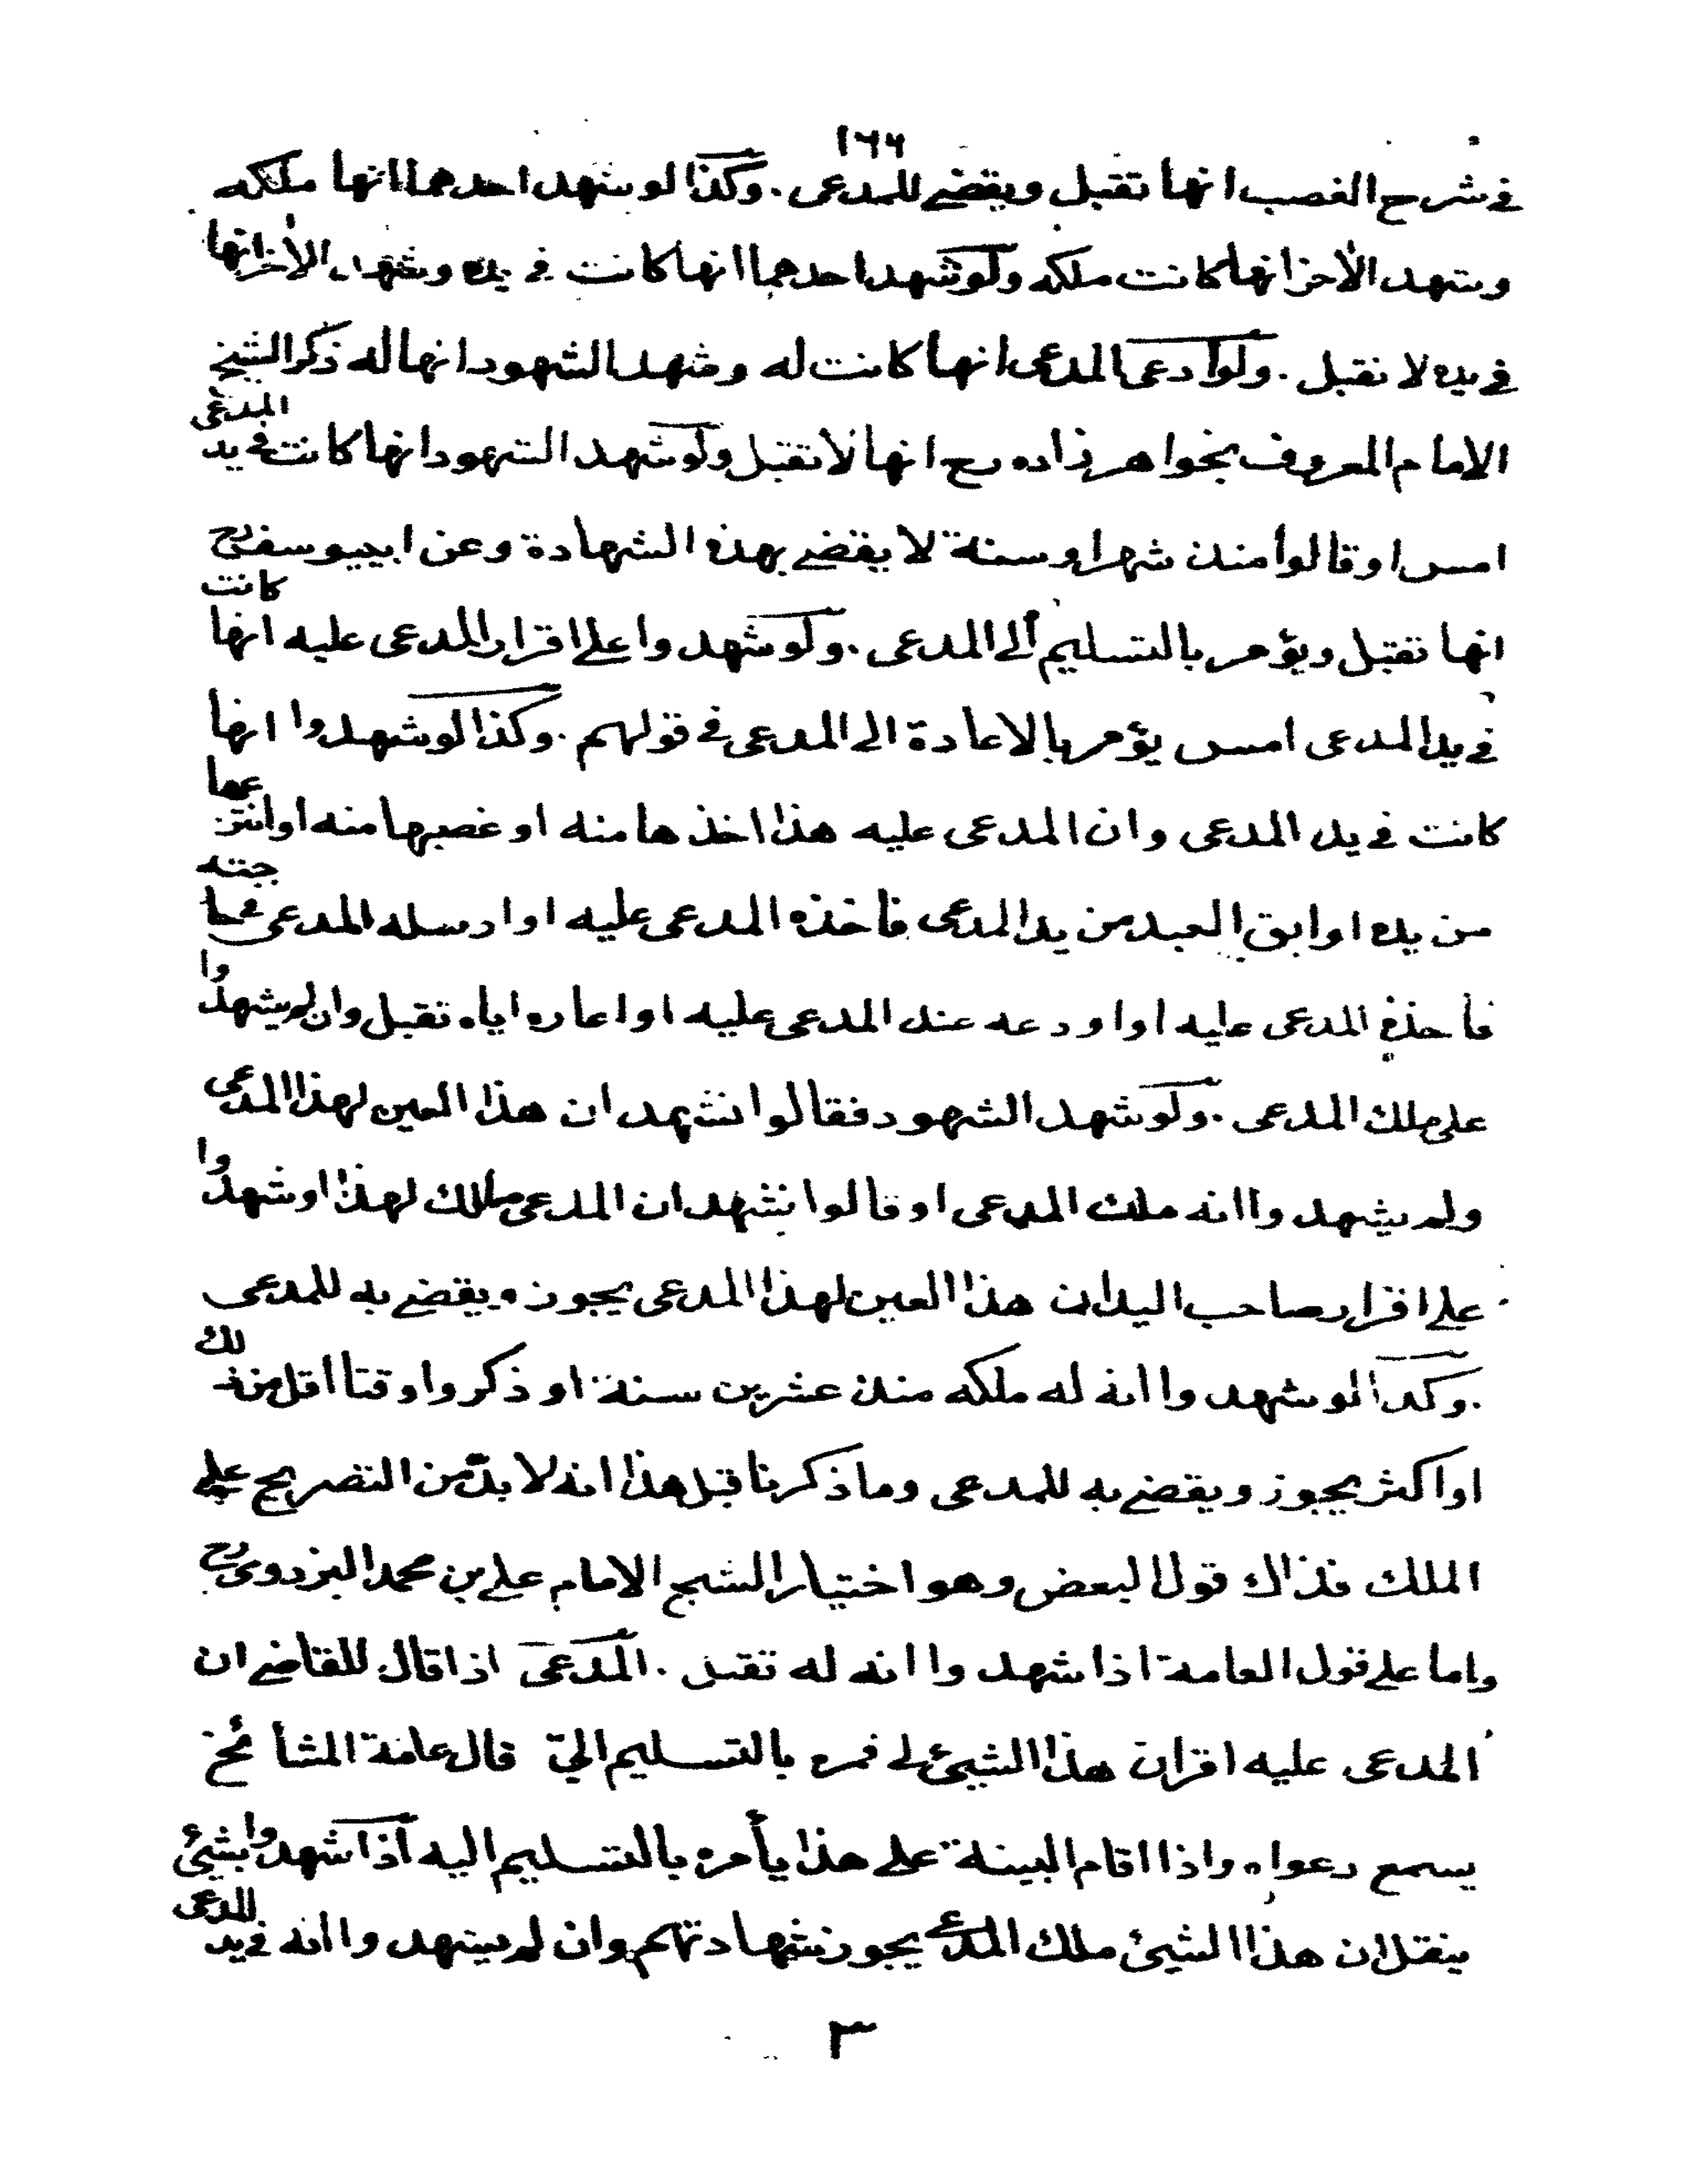 ١٦٤
في شرح الغصب انها تقبل ويقضے للمدعى . وكذا لو شهد احدهما انها ملكه
وشهد الأخر انها كانت ملكه ولو شهد احدهما انها كانت في يده وشهد الأخر انها
في يده لا تقبل . ولو ادعى المدعى انها كانت له وشهد الشهود انها له ذكر الشيخ
الامام المعروف بخواهر زاده رح انها لا تقبل ولو شهد الشهود انها كانت في يد المدعى
امس او قالوا منذ شهر او سنة لا يقضے بهذه الشهادة وعن ابييوسف رح
انها تقبل ويؤمر بالتسليم الے المدعى . ولو شهدوا علے اقرار المدعى عليه انها كانت
في يد المدعى امس يؤمر بالاعادة الے المدعى في قولهم . وكذا لو شهدوا انها
كانت في يد المدعى وان المدعى عليه هذا اخذها منه او غصبها منه او انتزعها
من يده او ابق العبد من يد المدعى فأخذه المدعى عليه او ارسله المدعى في حاجته
فأخذه المدعى عليه او اودعه عند المدعى عليه او اعاره اياه تقبل وان لم يشهدوا
علے ملك المدعى . ولو شهد الشهود فقالوا نشهد ان هذا العين لهذا المدعى
ولم يشهدوا انه ملك المدعى او قالوا نشهد ان المدعى ملك لهذا او شهدوا
علے اقرار صاحب اليد ان هذا العين لهذا المدعى يجوز ويقضے به للمدعى
. وكذا لو شهدوا انه له ملكه منذ عشرين سنة او ذكروا وقتا اقل من ذلك
او اكثر يجوز ويقضے به للمدعى وما ذكرنا قبل هذا انه لا بدّ من التصريح علے
الملك فذاك قول البعض وهو اختيار الشيخ الامام علے بن محمد البزدوى رح
واما علے قول العامة اذا شهدوا انه له تقبل . المدعى اذا قال للقاضے ان
المدعى عليه اقر ان هذا الشيئ لے فمره بالتسليم اليّ قال عامة المشأئخ
يسمع دعواه واذا اقام البينة علے هذا يأمره بالتسليم اليه اذا شهدوا بشيئ
ينقل ان هذا الشيئ ملك المدعى يجوز شهادتهم وان لم يشهدوا انه في يد المدعى
٣